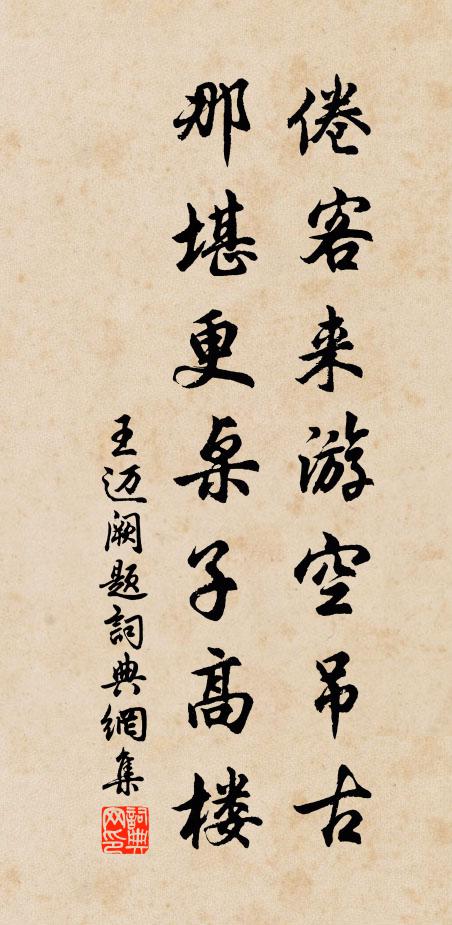 倦客来游空吊古
那堪更桌子高楼
王迈阙题詞典網集
詞典网印